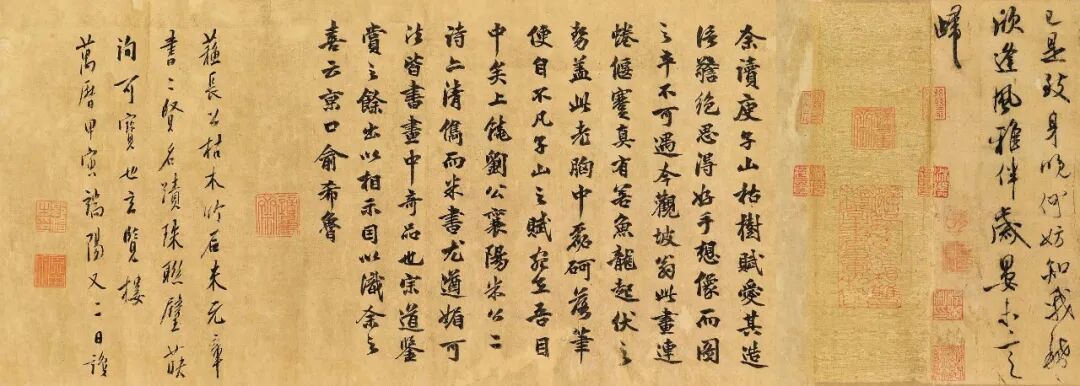 已是致身晚何妨知我稀
欣逢風雅伴歲晏未言
歸
余讀庾子山枯樹賦愛其造
語警絕思得好手想像而圖
之卒不可遇今觀坡翁此畫連
蜷偃蹇真有若魚龍起伏之
勢蓋此老胸中磊砢落筆
便自不凡子山之賦宛在吾目
中矣上饒劉公襄陽米公二
詩亦清儁而米書尤遒媚可
法皆書畫中奇品也宗道鑒
賞之餘出以相示因以識余之
喜云京口俞希魯
蘇長公枯木竹石米元章
書二賢名蹟珠聯璧映
洵可寶也玄覽樓
萬曆甲寅端陽又二日識